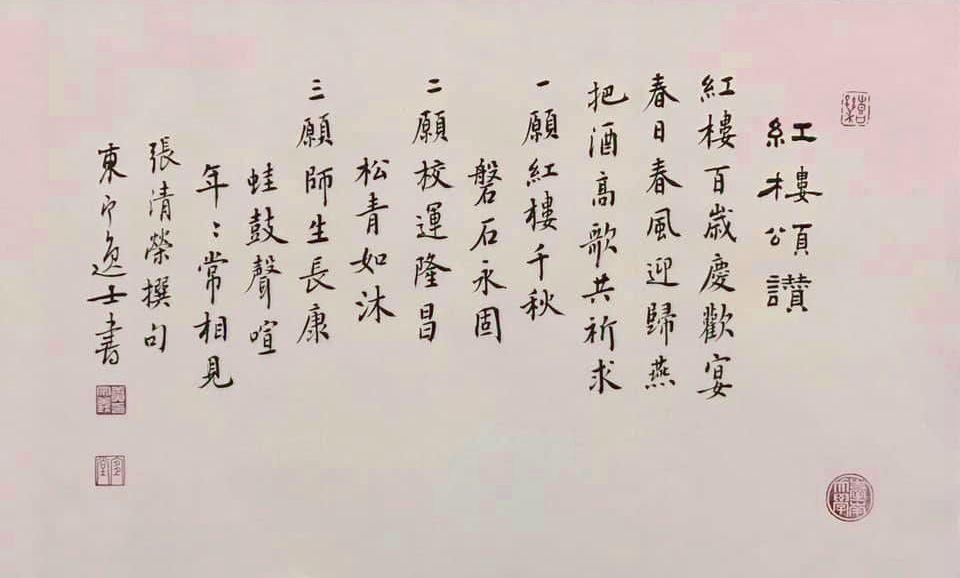 紅樓頌讚
紅樓百歲慶歡宴
春日春風迎歸燕
把酒高歌共祈求
一願紅樓千秋
磐石永固
二願校運隆昌
松青如沐
三願師生長康
蛙鼓聲喧
年〻常相見
張清榮撰句
東寧逸士書
臺南大學